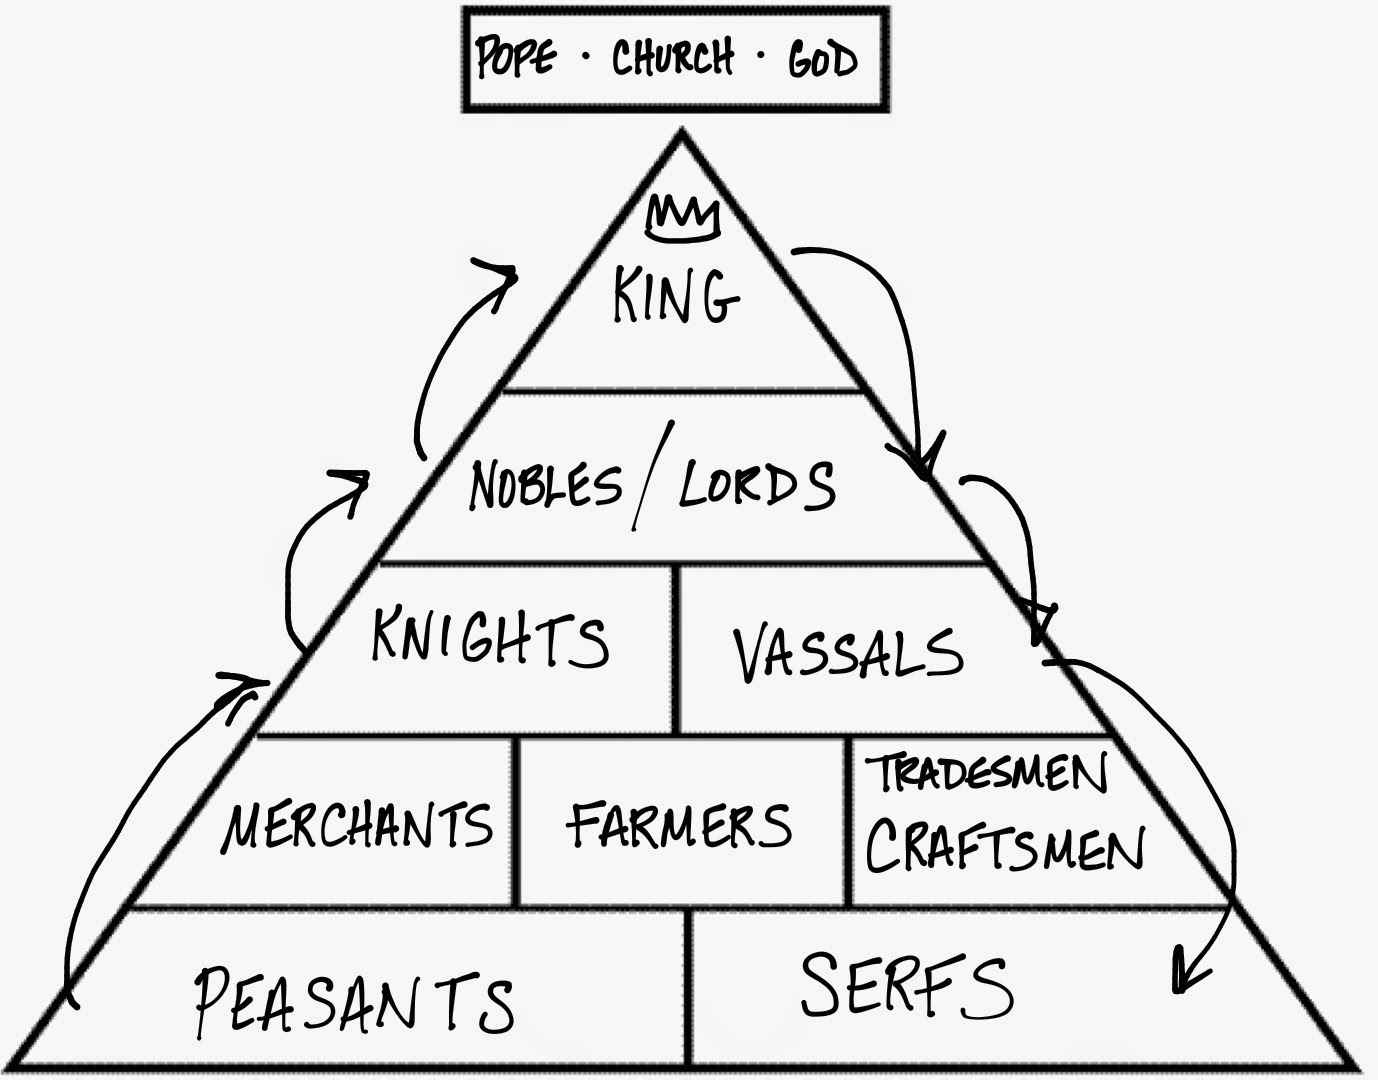 POPE · CHURCH · GOD
KING
NOBLES / LORDS
KNIGHTS
VASSALS
MERCHANTS
FARMERS
TRADESMEN
CRAFTSMEN
PEASANTS
SERFS